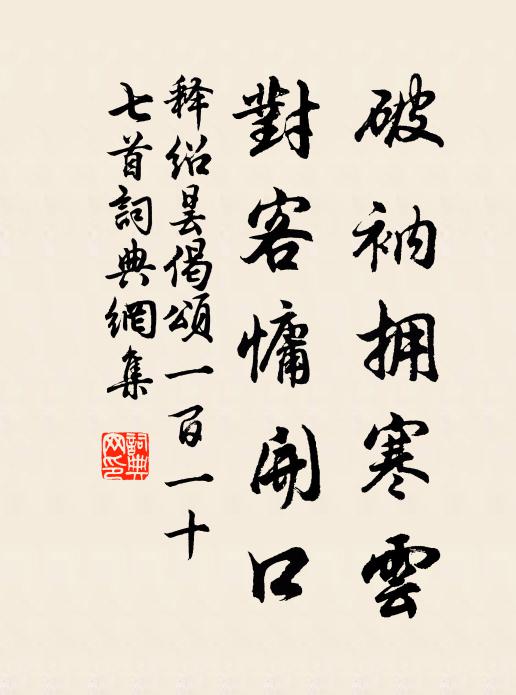 破衲拥寒雲
對客慵開口
释绍昙偈頌一百一十
七首詞典網集
詞典
网印